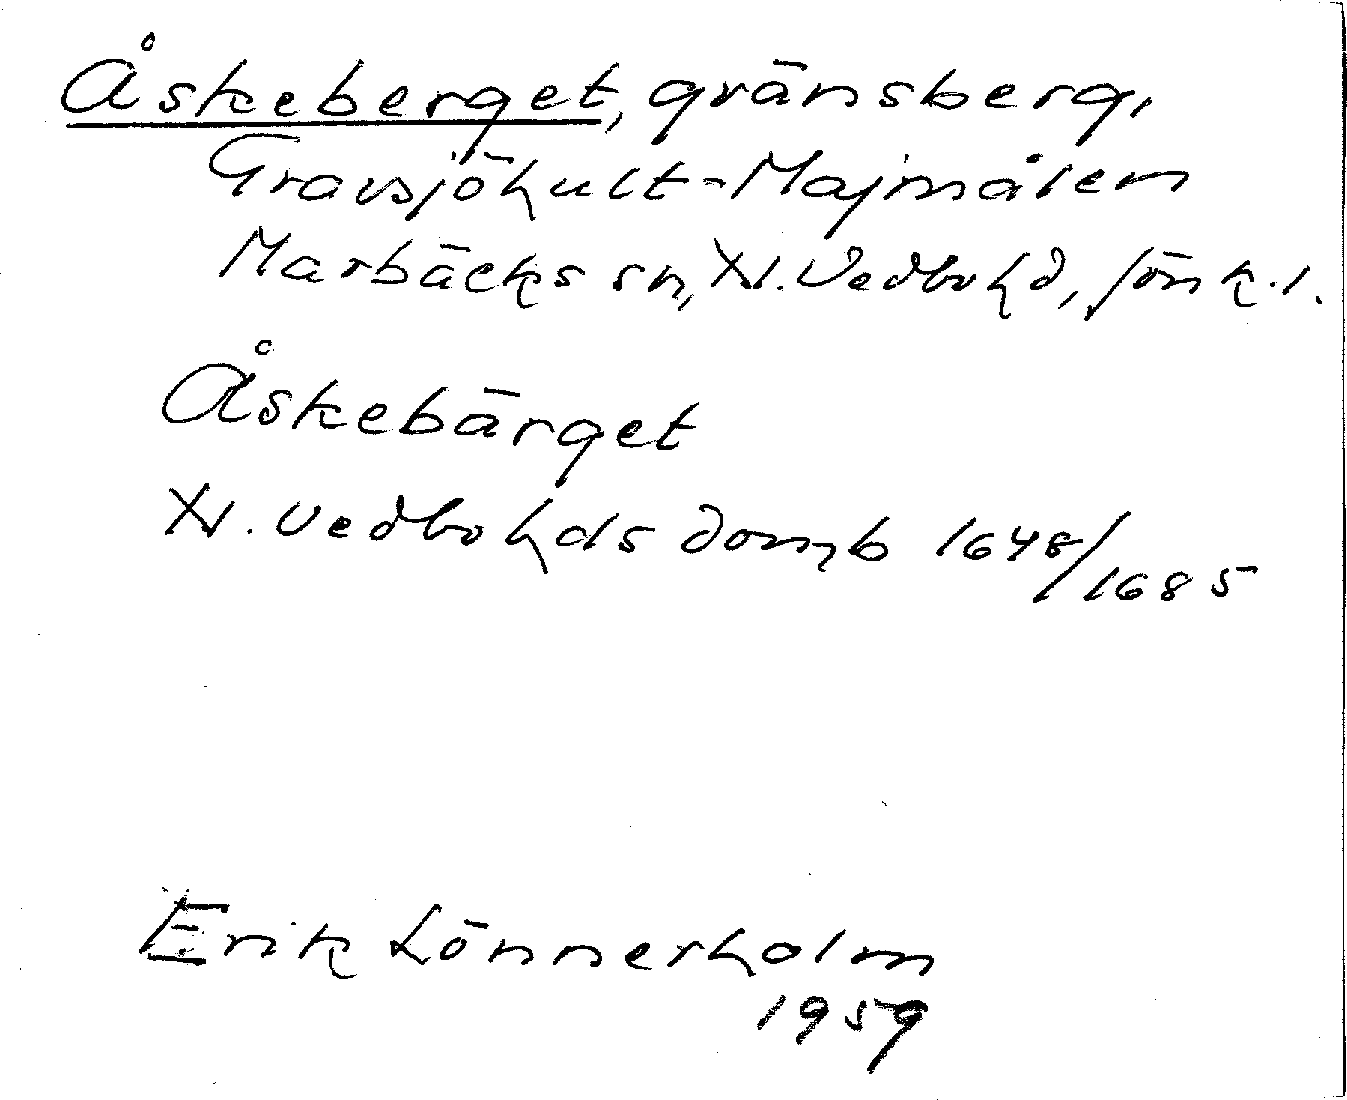 Åskeberget, gränsberg,
Gravsjöhult-Majmålen
Marbäcks sn, N. Vedbo hd, Jönk. l.
Åskebärget
N. Vedbo hds domb 1648/1685
Erik Lönnerholm
1959